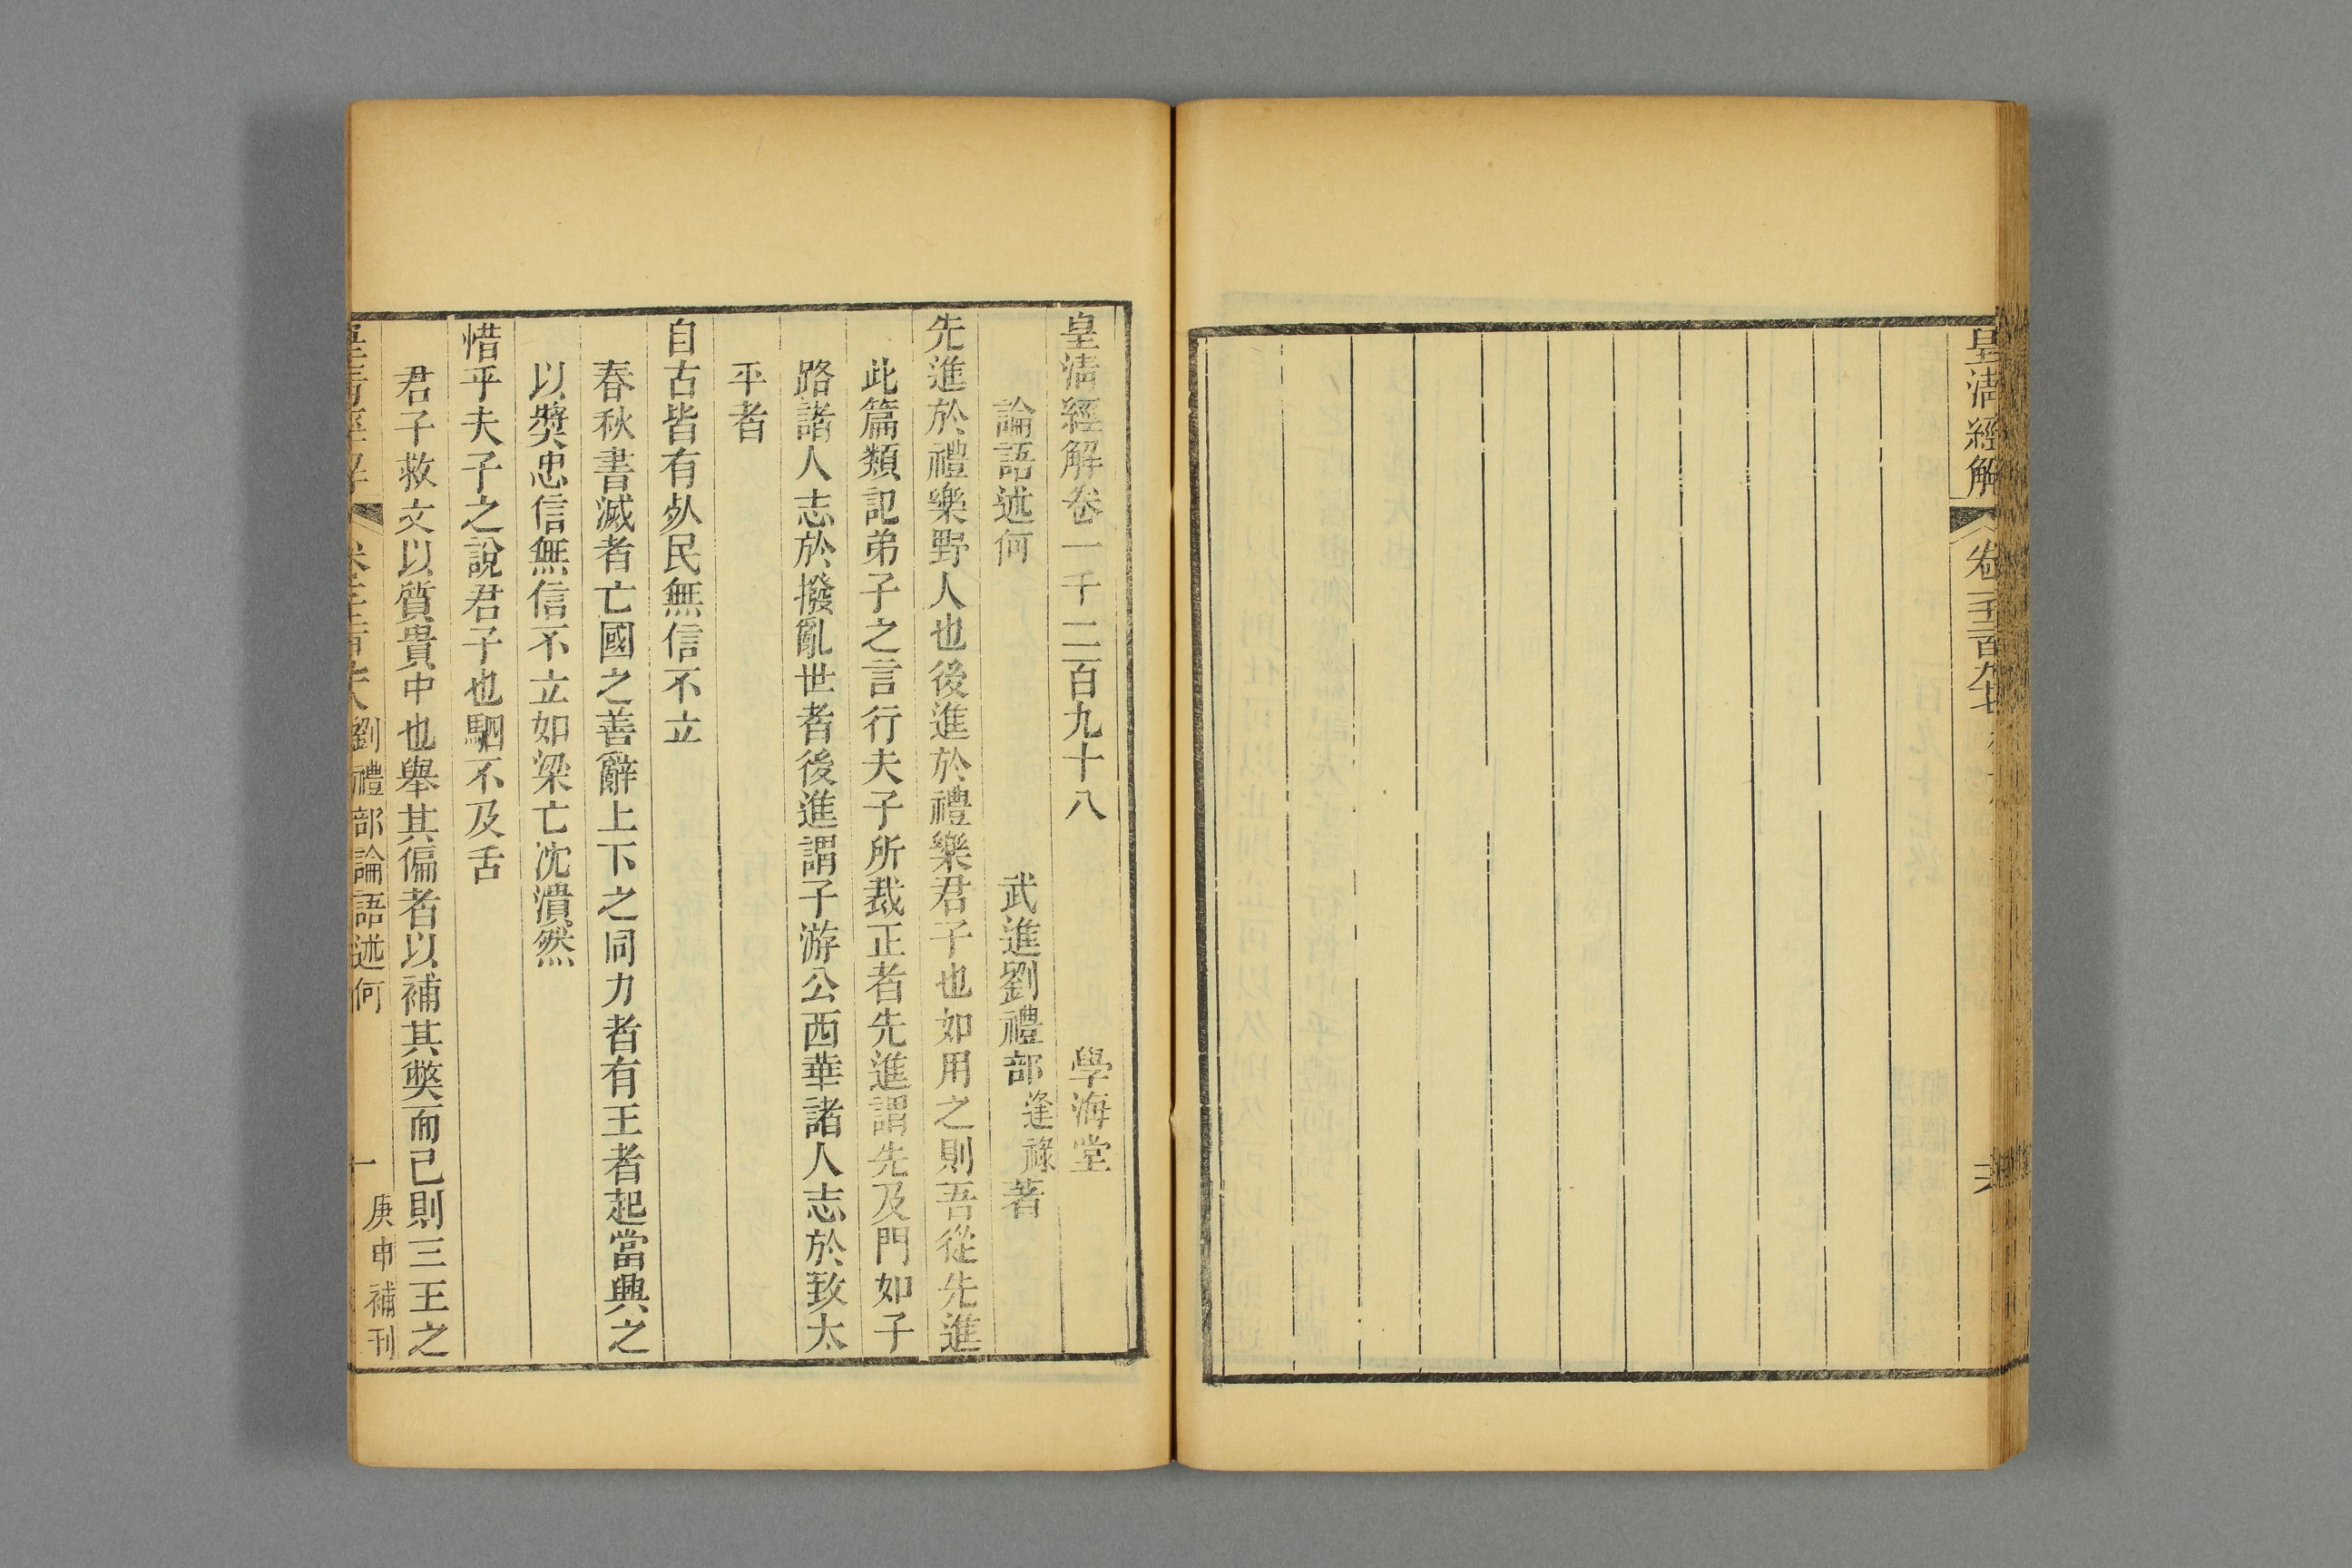 皇清經解
卷千二百九十七
皇清經解卷一千二百九十八 學海堂
論語述何 武進劉禮部逢祿著
先進於禮樂野人也後進於禮樂君子也如用之則吾從先進
此篇類記弟子之言行夫子所裁正者先進謂先及門如子
路諸人志於撥亂世者後進謂子游公西華諸人志於致太
平者
自古皆有㱙民無信不立
春秋書滅者亡國之善辭上下之同力者有王者起當興之
以奬忠信無信不立如梁亡沈潰然
惜乎夫子之說君子也駟不及舌
君子救文以質貴中也舉其偏者以補其獘而已則三王之
皇清經解 劉禮部論語述何 一
庚申補刊